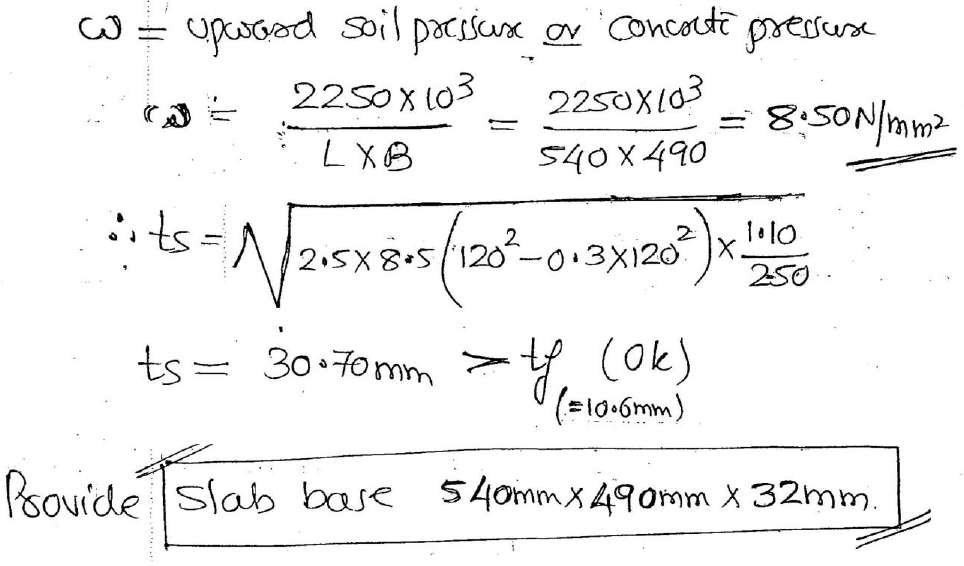 ω = upward soil pressure or concrete pressure
ω = 2250 X 10³ / L X B = 2250X10³ / 540 X 490 = 8.50N/mm²
∴ ts = √(2.5 X 8.5 (120² - 0.3X120²) X 1.10 / 250)
ts = 30.70mm > tf (Ok)
(=10.6mm)
Provide Slab base 540mm X 490mm X 32mm.